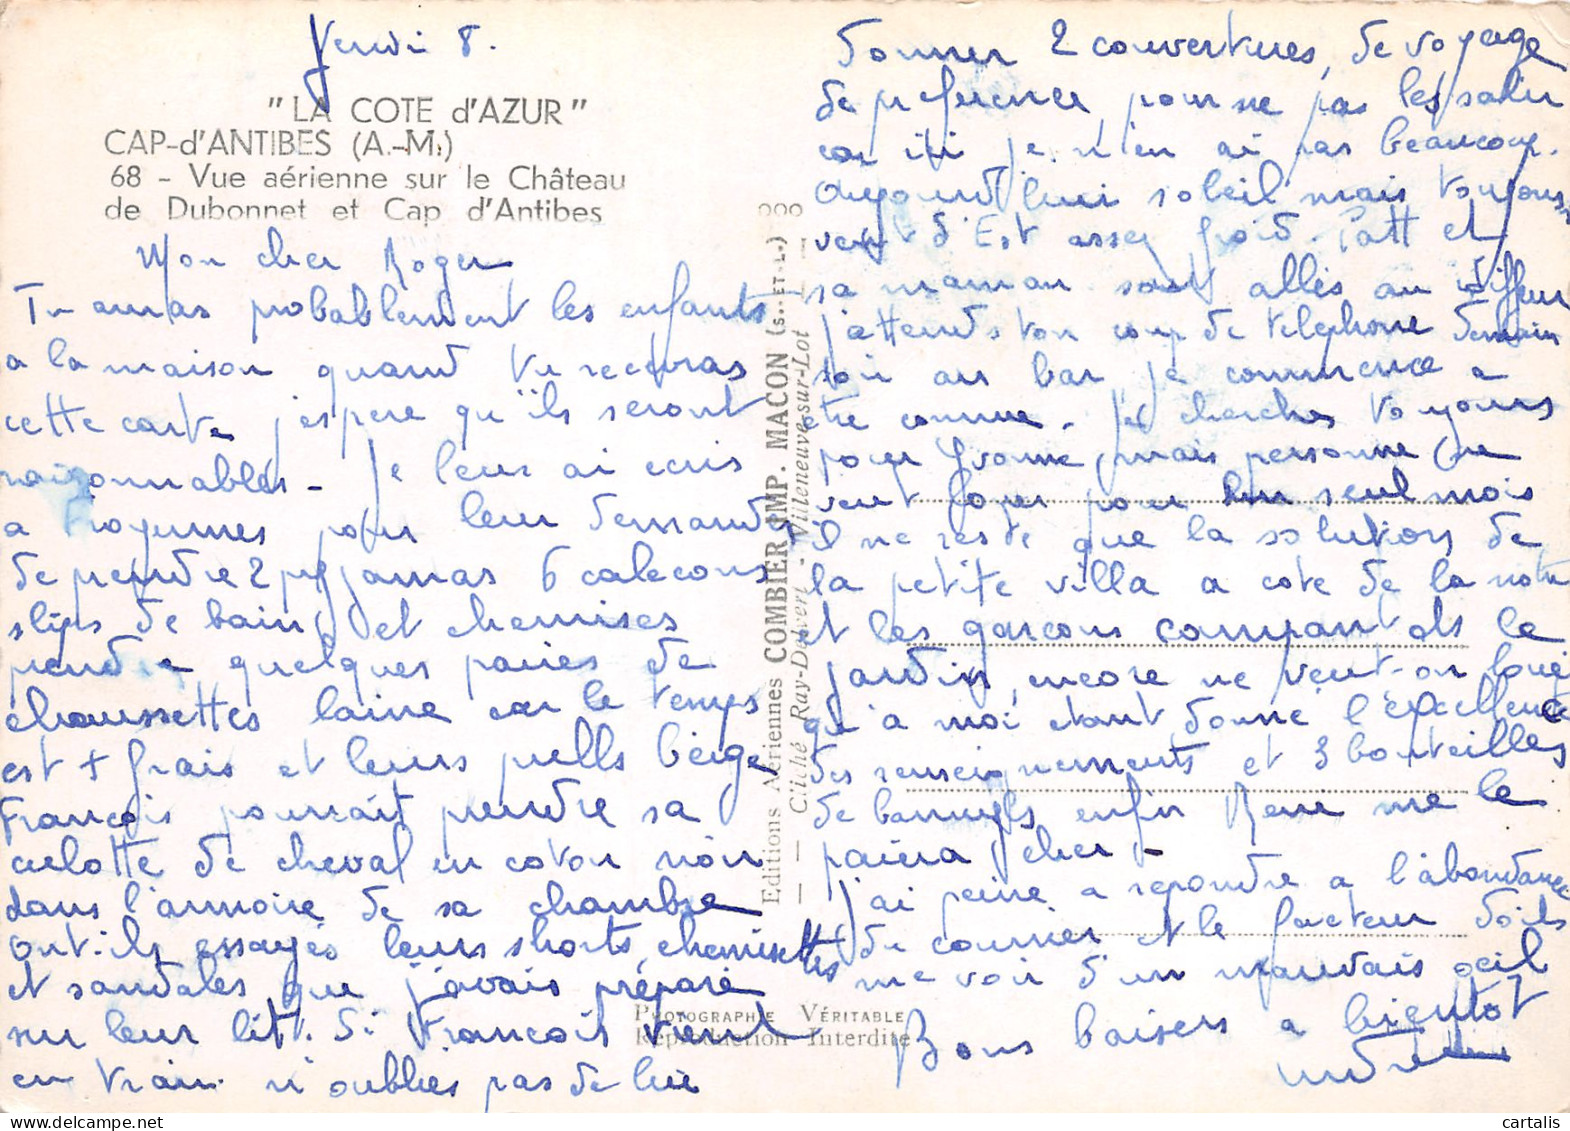 Jeudi 8.
"LA COTE d'AZUR"
CAP-d'ANTIBES (A.-M.)
68 - Vue aérienne sur le Château
de Dubonnet et Cap d'Antibes
Mon cher Roger
Tu auras probablement les enfants
a la maison quand tu recevras
cette carte j'espere qu'ils seront
raisonnables - Je leur ai ecris
a pour leur demander
de prendre 2 pyjamas 6 calecons
slips de bain et chemises
prendre quelques paires de
chaussettes laine car le temps
est + frais et leurs pulls beige
François pourrait prendre sa
culotte de cheval en coton noir
dans l'armoire de sa chambre
ont-ils essayés leurs shorts, chemisettes
et sandales que j'avais préparé
sur leur lit. Si François vient
en train n'oublies pas de lui
donner 2 couvertures, de voyage
de preference pour ne pas les salir
car ici je n'en ai pas beaucoup.
Aujourd'hui soleil mais toujours
vent d'Est assez froid. Patt et
sa maman sont allés au
j'attends ton coup de telephone demain
soir au bar je commence a
etre connue. J'ai cherche toujours
pour Yvonne, mais personne ne
veut louer pour un seul mois
il ne reste que la solution de
la petite villa a cote de la notre
et les garcons campant ds le
jardin, encore ne veut-on louer
qu'a moi etant donne l'excellence
des renseignements et 3 bouteilles
de banyuls enfin Rene me le
paiera cher -
J'ai peine a repondre a l'abondance
de courrier et le facteur doit
me voir d'un mauvais oeil
Bons baisers a bientot
Andree
ooo
Editions Aériennes COMBIER IMP. MACON (S.-ET-L.)
— Cliché Ray-Delvert - Villeneuve-sur-Lot —
PHOTOGRAPHIE VÉRITABLE
Reproduction Interdite
cartalis